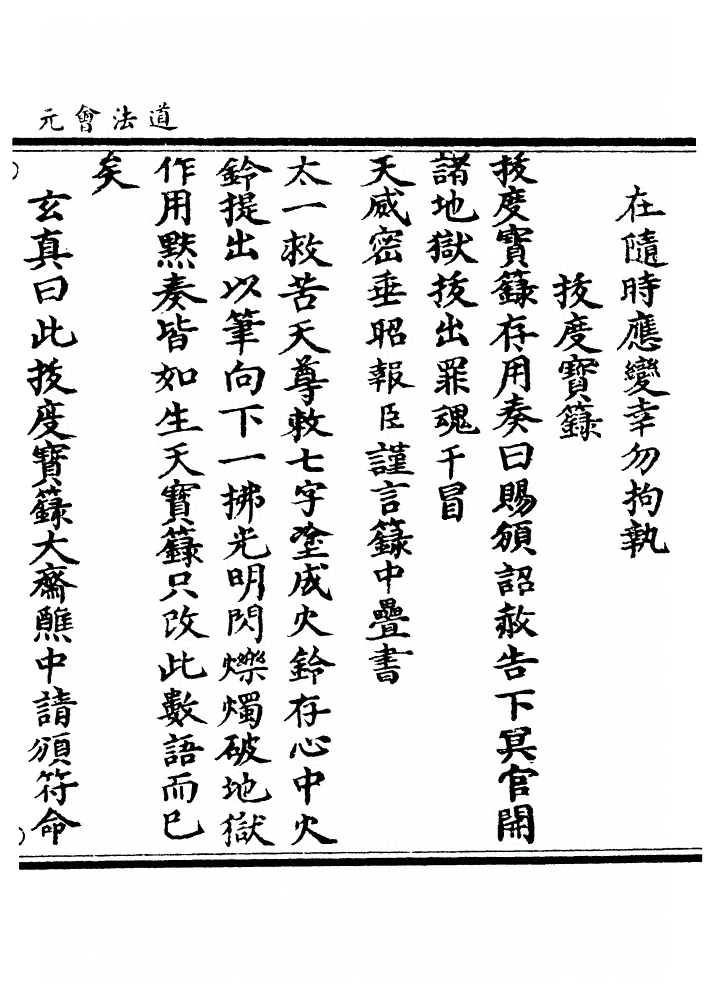 道法會元
在隨時應變幸勿拘執
拔度寶籙
拔度寶籙存用奏曰賜頒詔赦告下冥官開
諸地獄拔出罪魂干冒
天威密垂昭報臣謹言籙中疊書
太一救苦天尊敕七字塗成火鈴存心中火
鈴提出以筆向下一拂光明閃爍燭破地獄
作用默奏皆如生天寶籙只改此數語而已
矣
玄真曰此拔度寶籙大齋醮中請頒符命